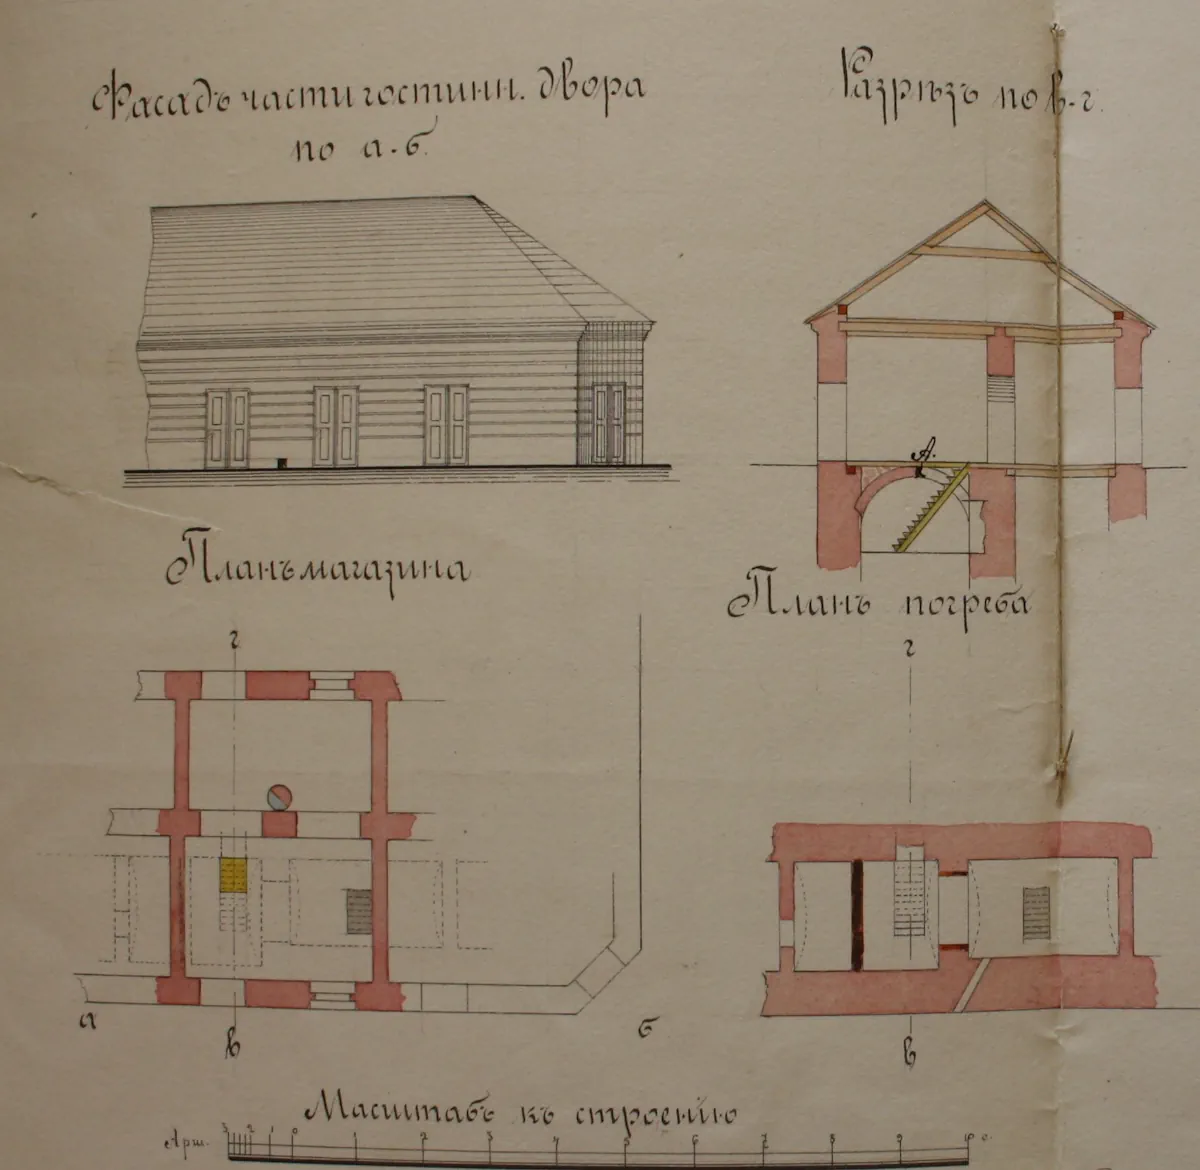 Фасадъ части гостинн. двора
по а-б.
Разрѣзъ по в-г.
А.
Планъ магазина
Планъ погреба
г
г
а
в
б
в
Масштабъ къ строенію
Арш. 3 2 1 0 1 2 3 4 5 6 7 8 9 10 с.